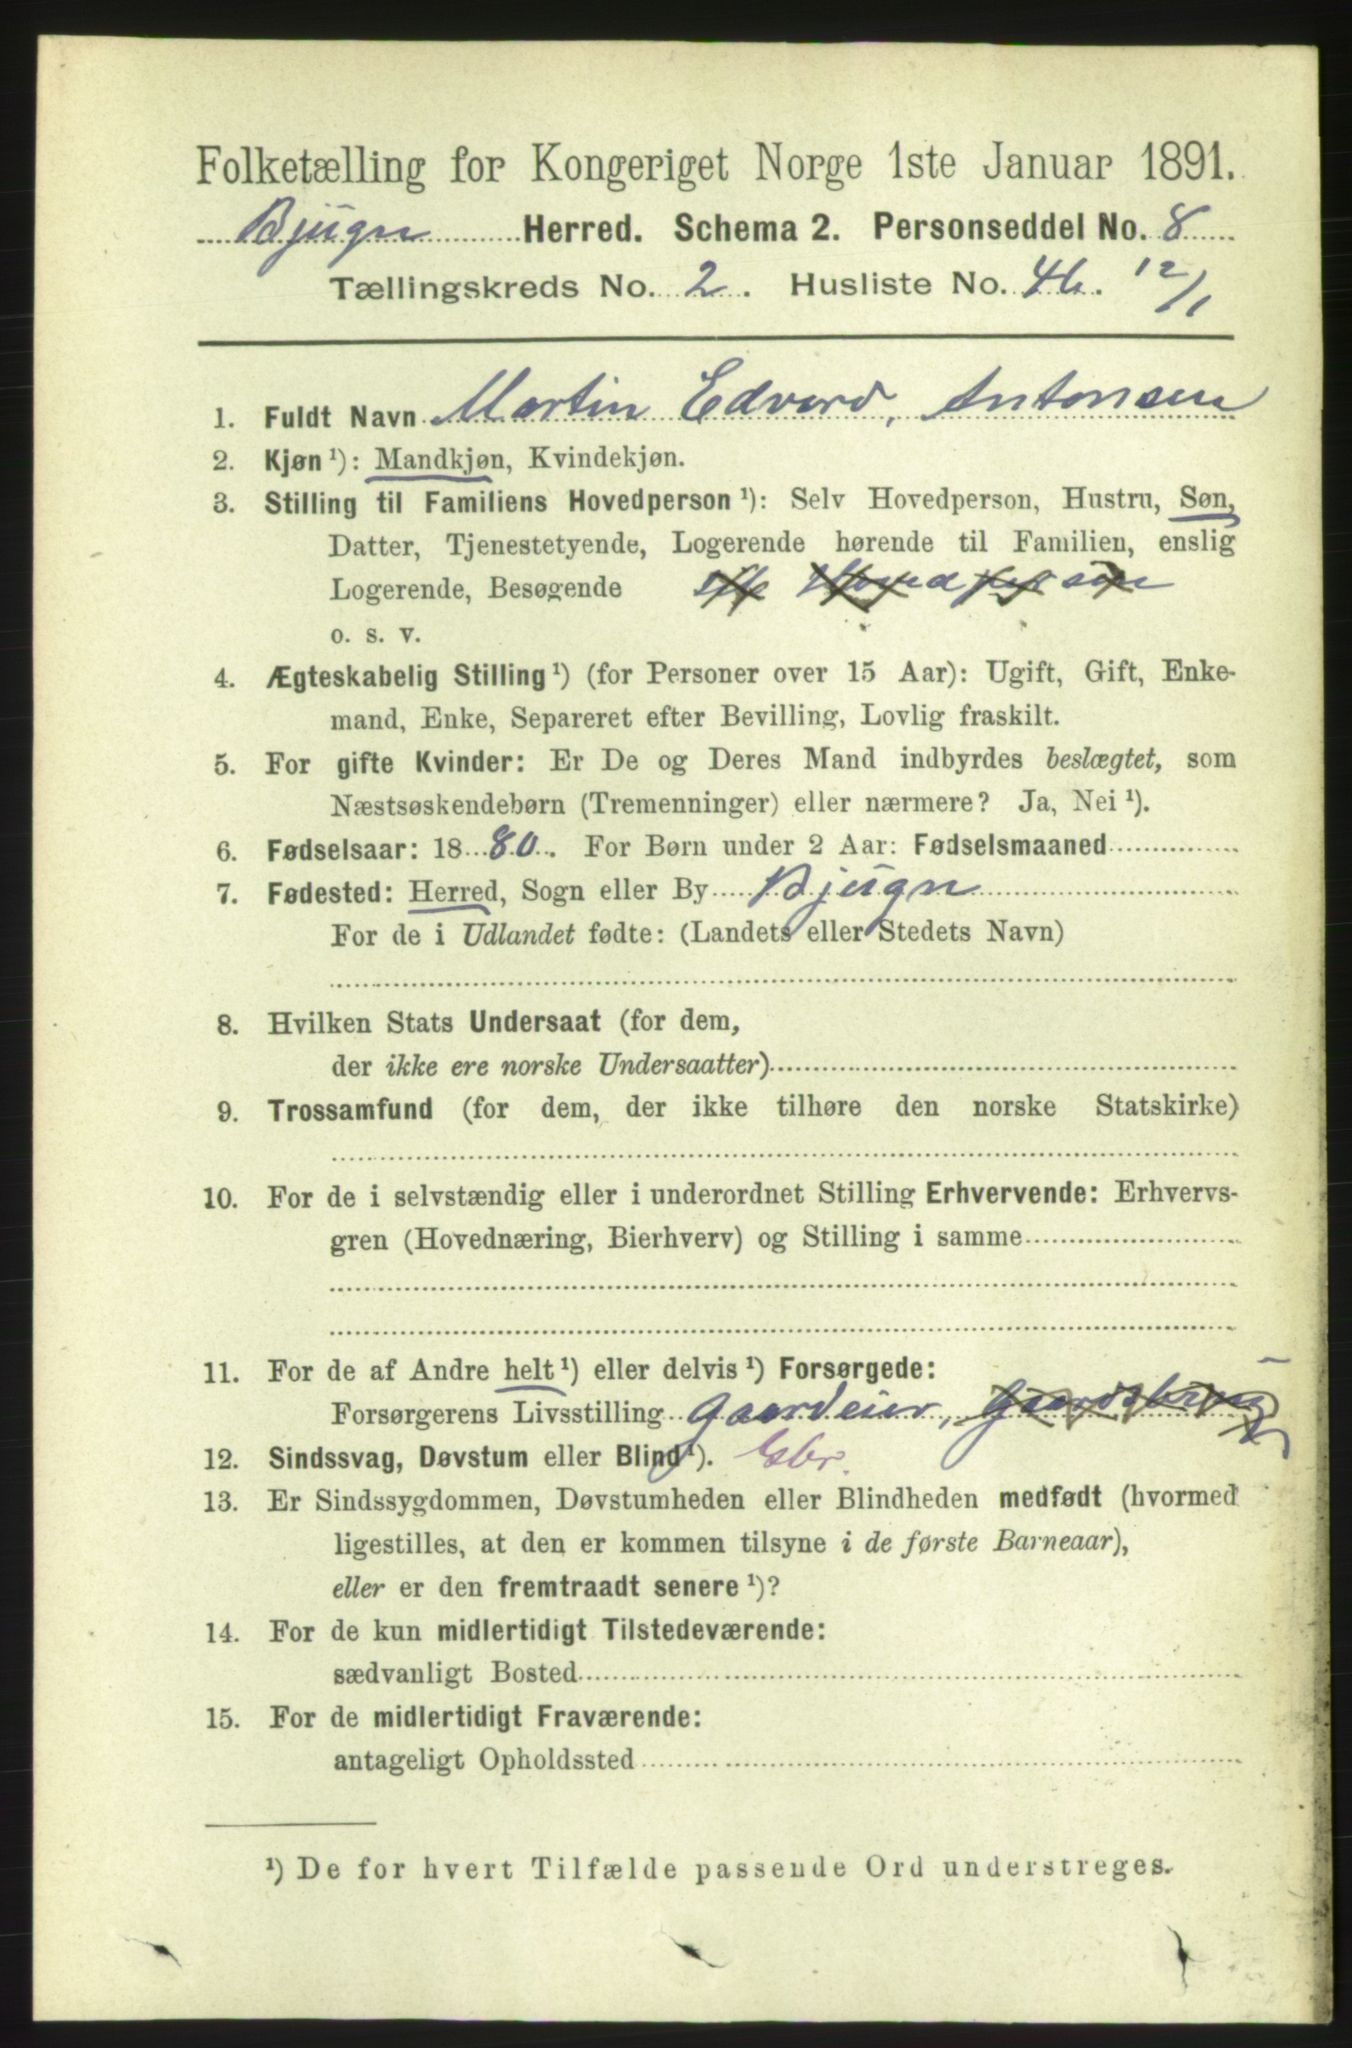 Folketælling for Kongeriget Norge 1ste Januar 1891.
Bjugn Herred. Schema 2. Personseddel No. 8
Tællingskreds No. 2. Husliste No. 46. 12/1
1. Fuldt Navn Martin Edvard, Antonsen
2. Kjøn ¹): Mandkjøn, Kvindekjøn.
3. Stilling til Familiens Hovedperson ¹): Selv Hovedperson, Hustru, Søn,
Datter, Tjenestetyende, Logerende hørende til Familien, enslig
Logerende, Besøgende Hovedperson
o. s. v.
4. Ægteskabelig Stilling ¹) (for Personer over 15 Aar): Ugift, Gift, Enke-
mand, Enke, Separeret efter Bevilling, Lovlig fraskilt.
5. For gifte Kvinder: Er De og Deres Mand indbyrdes beslægtet, som
Næstsøskendebørn (Tremenninger) eller nærmere? Ja, Nei ¹).
6. Fødselsaar: 1880. For Børn under 2 Aar: Fødselsmaaned
7. Fødested: Herred, Sogn eller By Bjugn
For de i Udlandet fødte: (Landets eller Stedets Navn)
8. Hvilken Stats Undersaat (for dem,
der ikke ere norske Undersaatter)
9. Trossamfund (for dem, der ikke tilhøre den norske Statskirke)
10. For de i selvstændig eller i underordnet Stilling Erhvervende: Erhvervs-
gren (Hovednæring, Bierhverv) og Stilling i samme
11. For de af Andre helt ¹) eller delvis ¹) Forsørgede:
Forsørgerens Livsstilling Gaardeier, Gaardsbrug
12. Sindssvag, Døvstum eller Blind ¹). Gbr.
13. Er Sindssygdommen, Døvstumheden eller Blindheden medfødt (hvormed
ligestilles, at den er kommen tilsyne i de første Barneaar),
eller er den fremtraadt senere ¹)?
14. For de kun midlertidigt Tilstedeværende:
sædvanligt Bosted
15. For de midlertidigt Fraværende:
antageligt Opholdssted
¹) De for hvert Tilfælde passende Ord understreges.